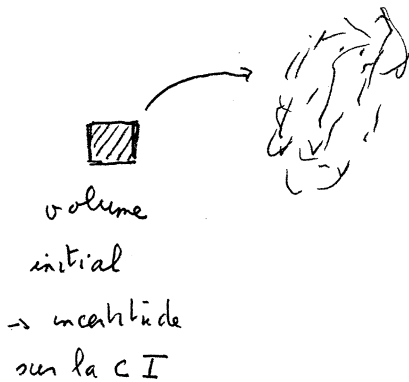 volume
initial
→ incertitude
sur la C I